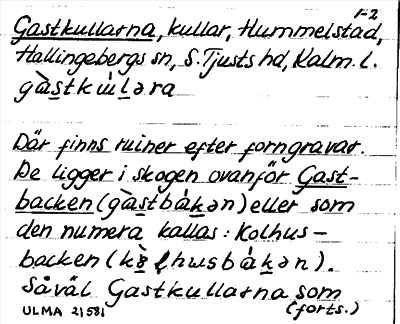 1-2
Gastkullarna, kullar, Hummelstad,
Hallingebergs sn, S. Tjusts hd, Kalm. l.
Där finns ruiner efter forngravar.
De ligger i skogen ovanför Gast-
backen (gàstbákən) eller som
den numera kallas: Kolhus-
backen
Såväl Gastkullarna som
(forts.)
ULMA 21581